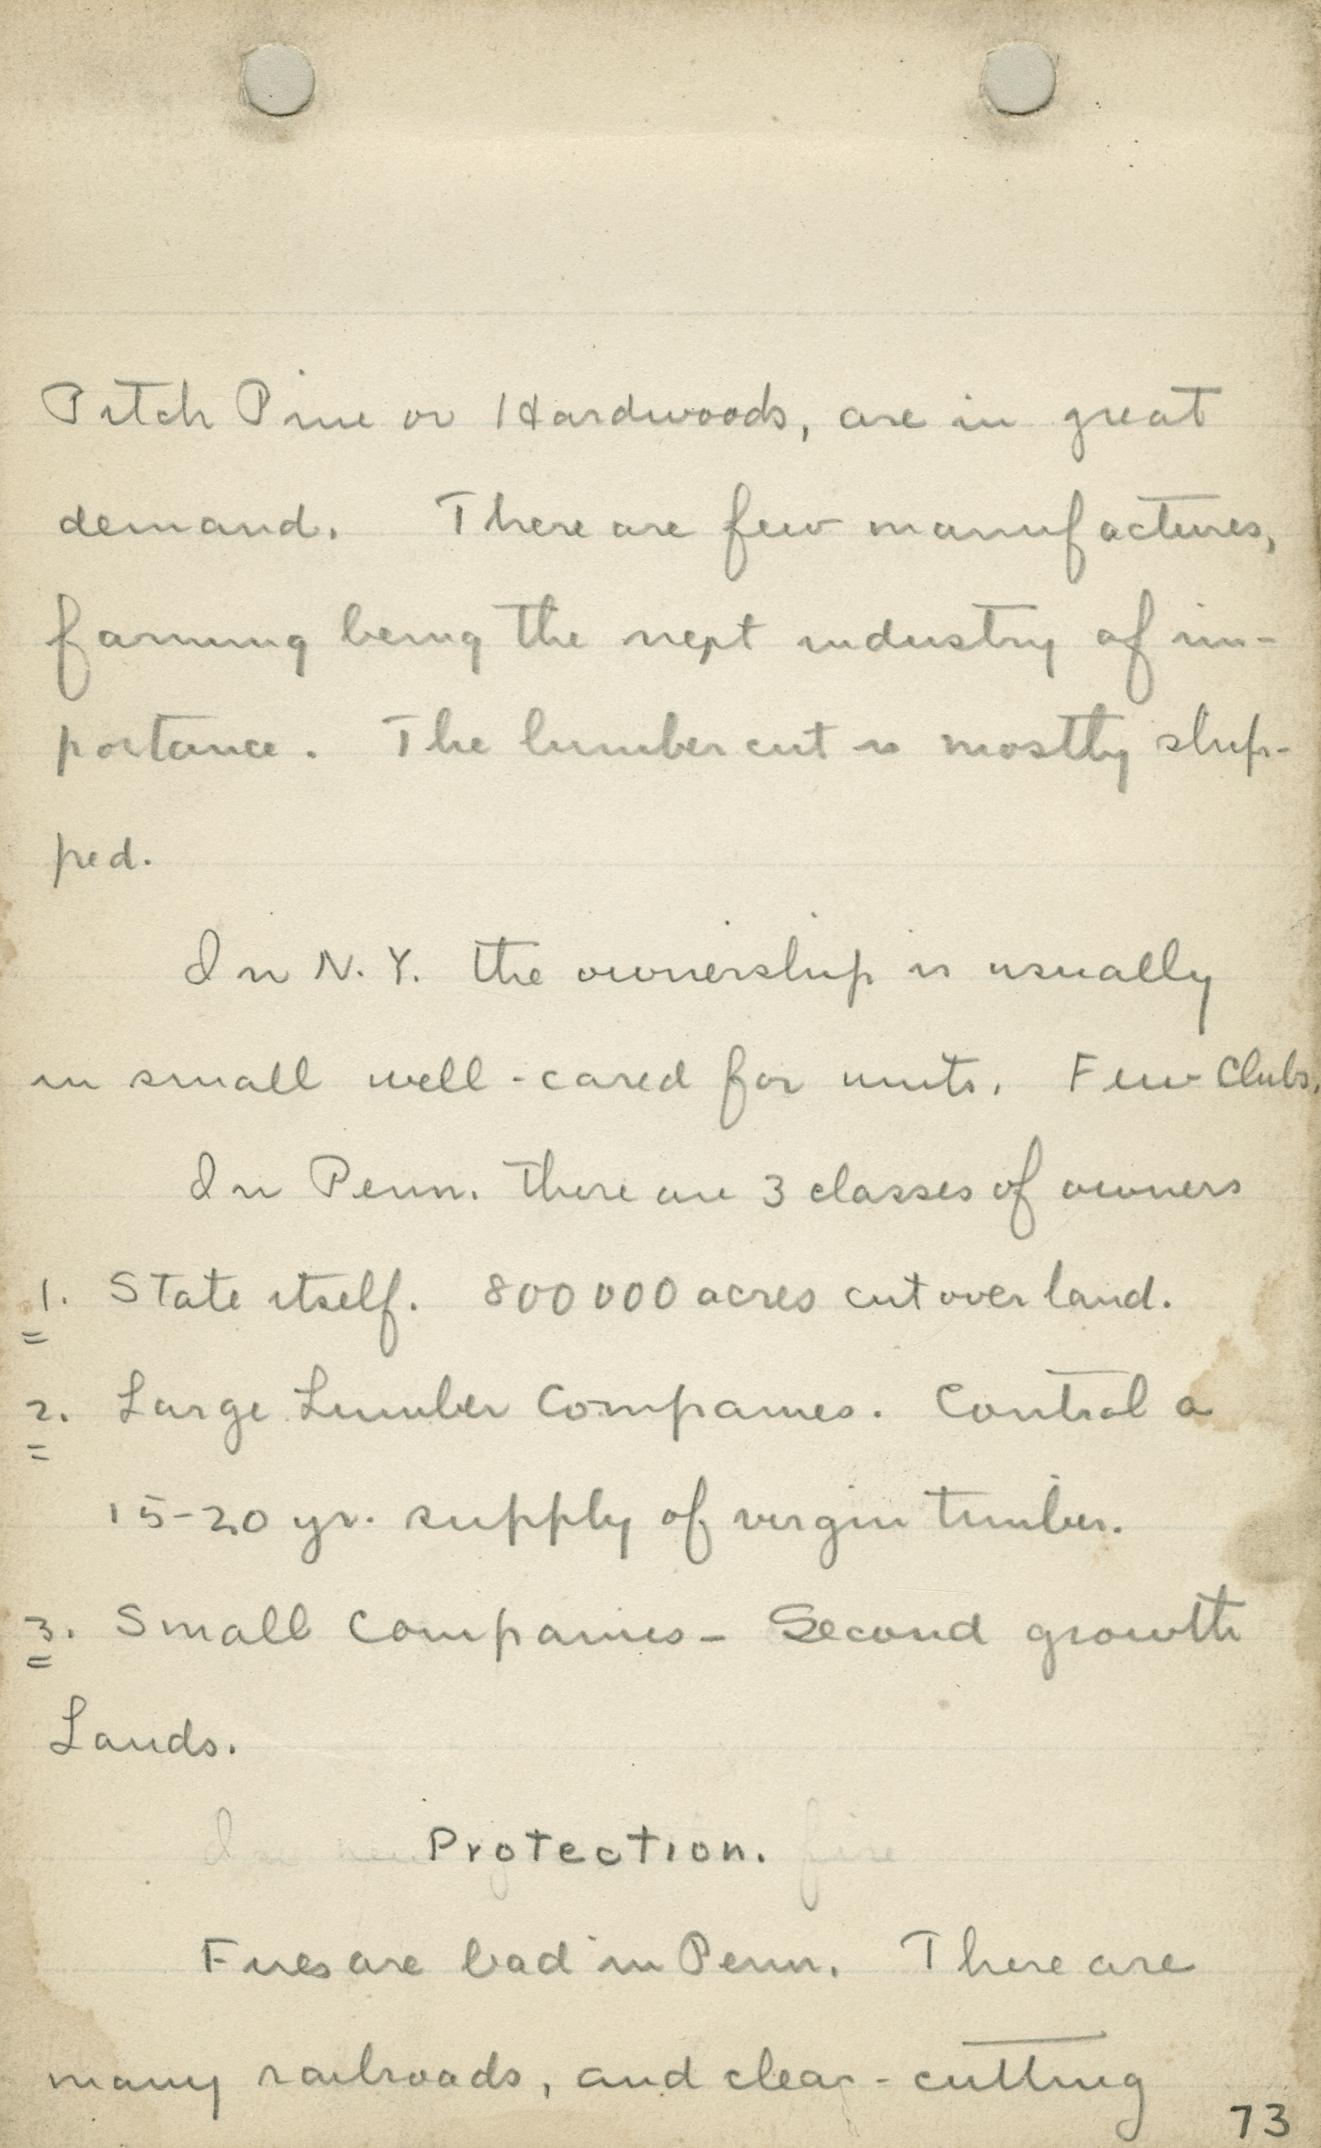 Pitch Pine or Hardwoods, are in great
demand. There are few manufactures,
farming being the next industry of im-
portance. The lumber cut is mostly ship-
ped.
In N.Y. the ownership is usually
in small well-cared for units. Few Clubs.
In Penn. there are 3 classes of owners
1. State itself. 800000 acres cut over land.
2. Large Lumber Companies. Control a
15-20 yr. supply of virgin timber.
3. Small Companies - Second growth
Lands.
Protection.
Fires are bad in Penn. There are
many railroads, and clear-cutting
73